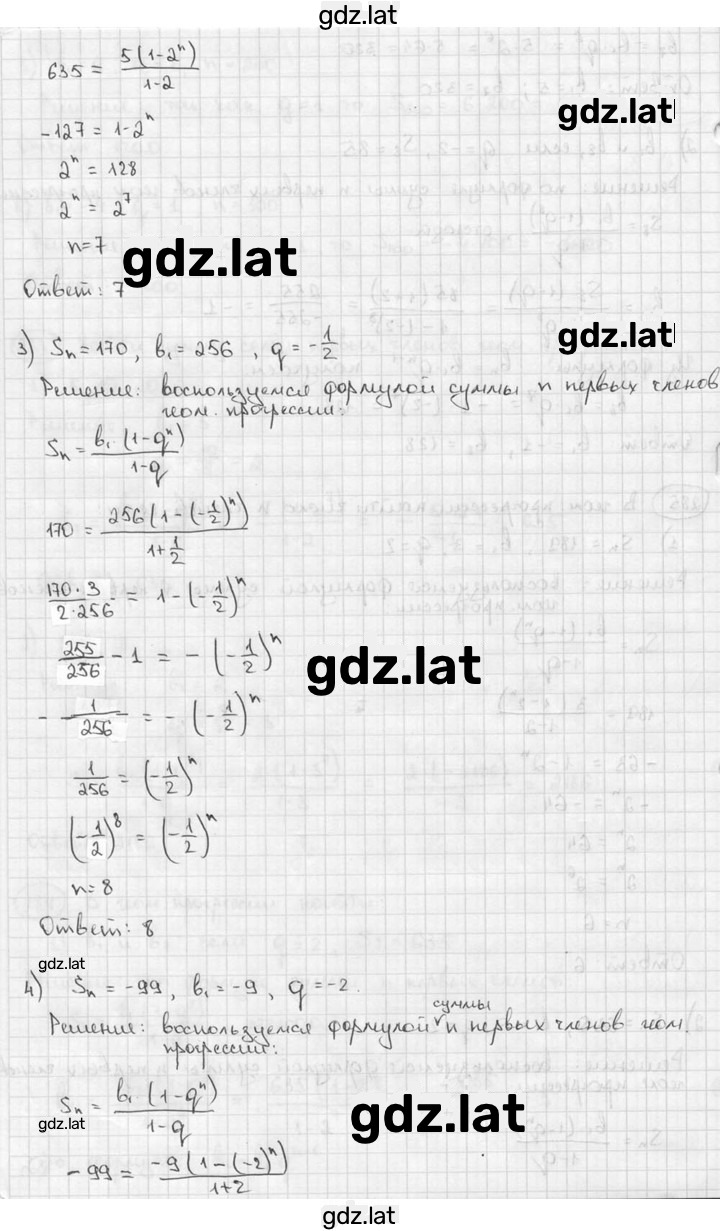 gdz.lat
635 = 5(1-2ⁿ)/(1-2)
gdz.lat
-127 = 1-2ⁿ
2ⁿ = 128
2ⁿ = 2⁷
n=7
gdz.lat
Ответ: 7
gdz.lat
3) Sₙ=170, b₁=256, q=-1/2
Решение: воспользуемся формулой суммы n первых членов
геом. прогрессии:
Sₙ = b₁·(1-qⁿ)/(1-q)
170 = 256(1-(-1/2)ⁿ)/(1+1/2)
170·3/(2·256) = 1-(-1/2)ⁿ
255/256 - 1 = -(-1/2)ⁿ
gdz.lat
-1/256 = -(-1/2)ⁿ
1/256 = (-1/2)ⁿ
(-1/2)⁸ = (-1/2)ⁿ
n=8
Ответ: 8
gdz.lat
4) Sₙ = -99, b₁=-9, q=-2.
Решение: воспользуемся формулой суммы n первых членов геом.
прогрессии:
Sₙ = b₁·(1-qⁿ)/(1-q)
gdz.lat
gdz.lat
-99 = -9(1-(-2)ⁿ)/(1+2)
gdz.lat